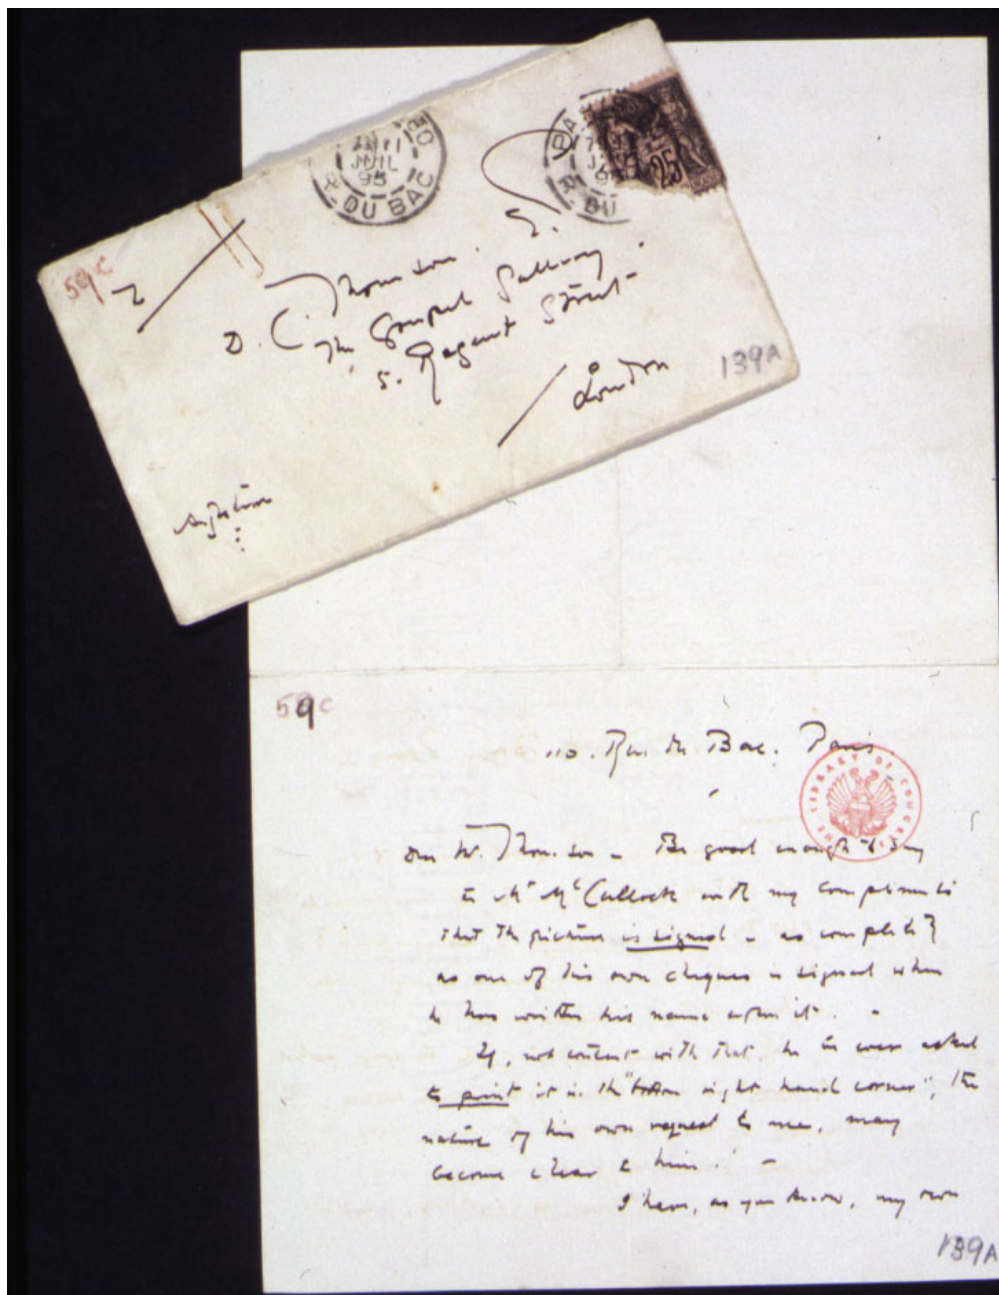 59c
JUIL
95
R. DU BAC
PA
R.
DU
25
D. C. Thomson. E.
The Goupil Gallery.
5. Regent Street
London
139A
Angleterre
59c
110. Rue du Bac. Paris
THE LIBRARY OF CONGRESS
Dear Mr. Thomson – Be good enough to say
to Mr McCulloch with my compliments
that the picture is signed – as completely
as one of his own cheques is signed when
he has written his name upon it. –
If, not content with that, he is ever asked
to print it in the "bottom right hand corner", the
nature of his own request to me, may
become clear to him! –
I have, as you know, my own
139A